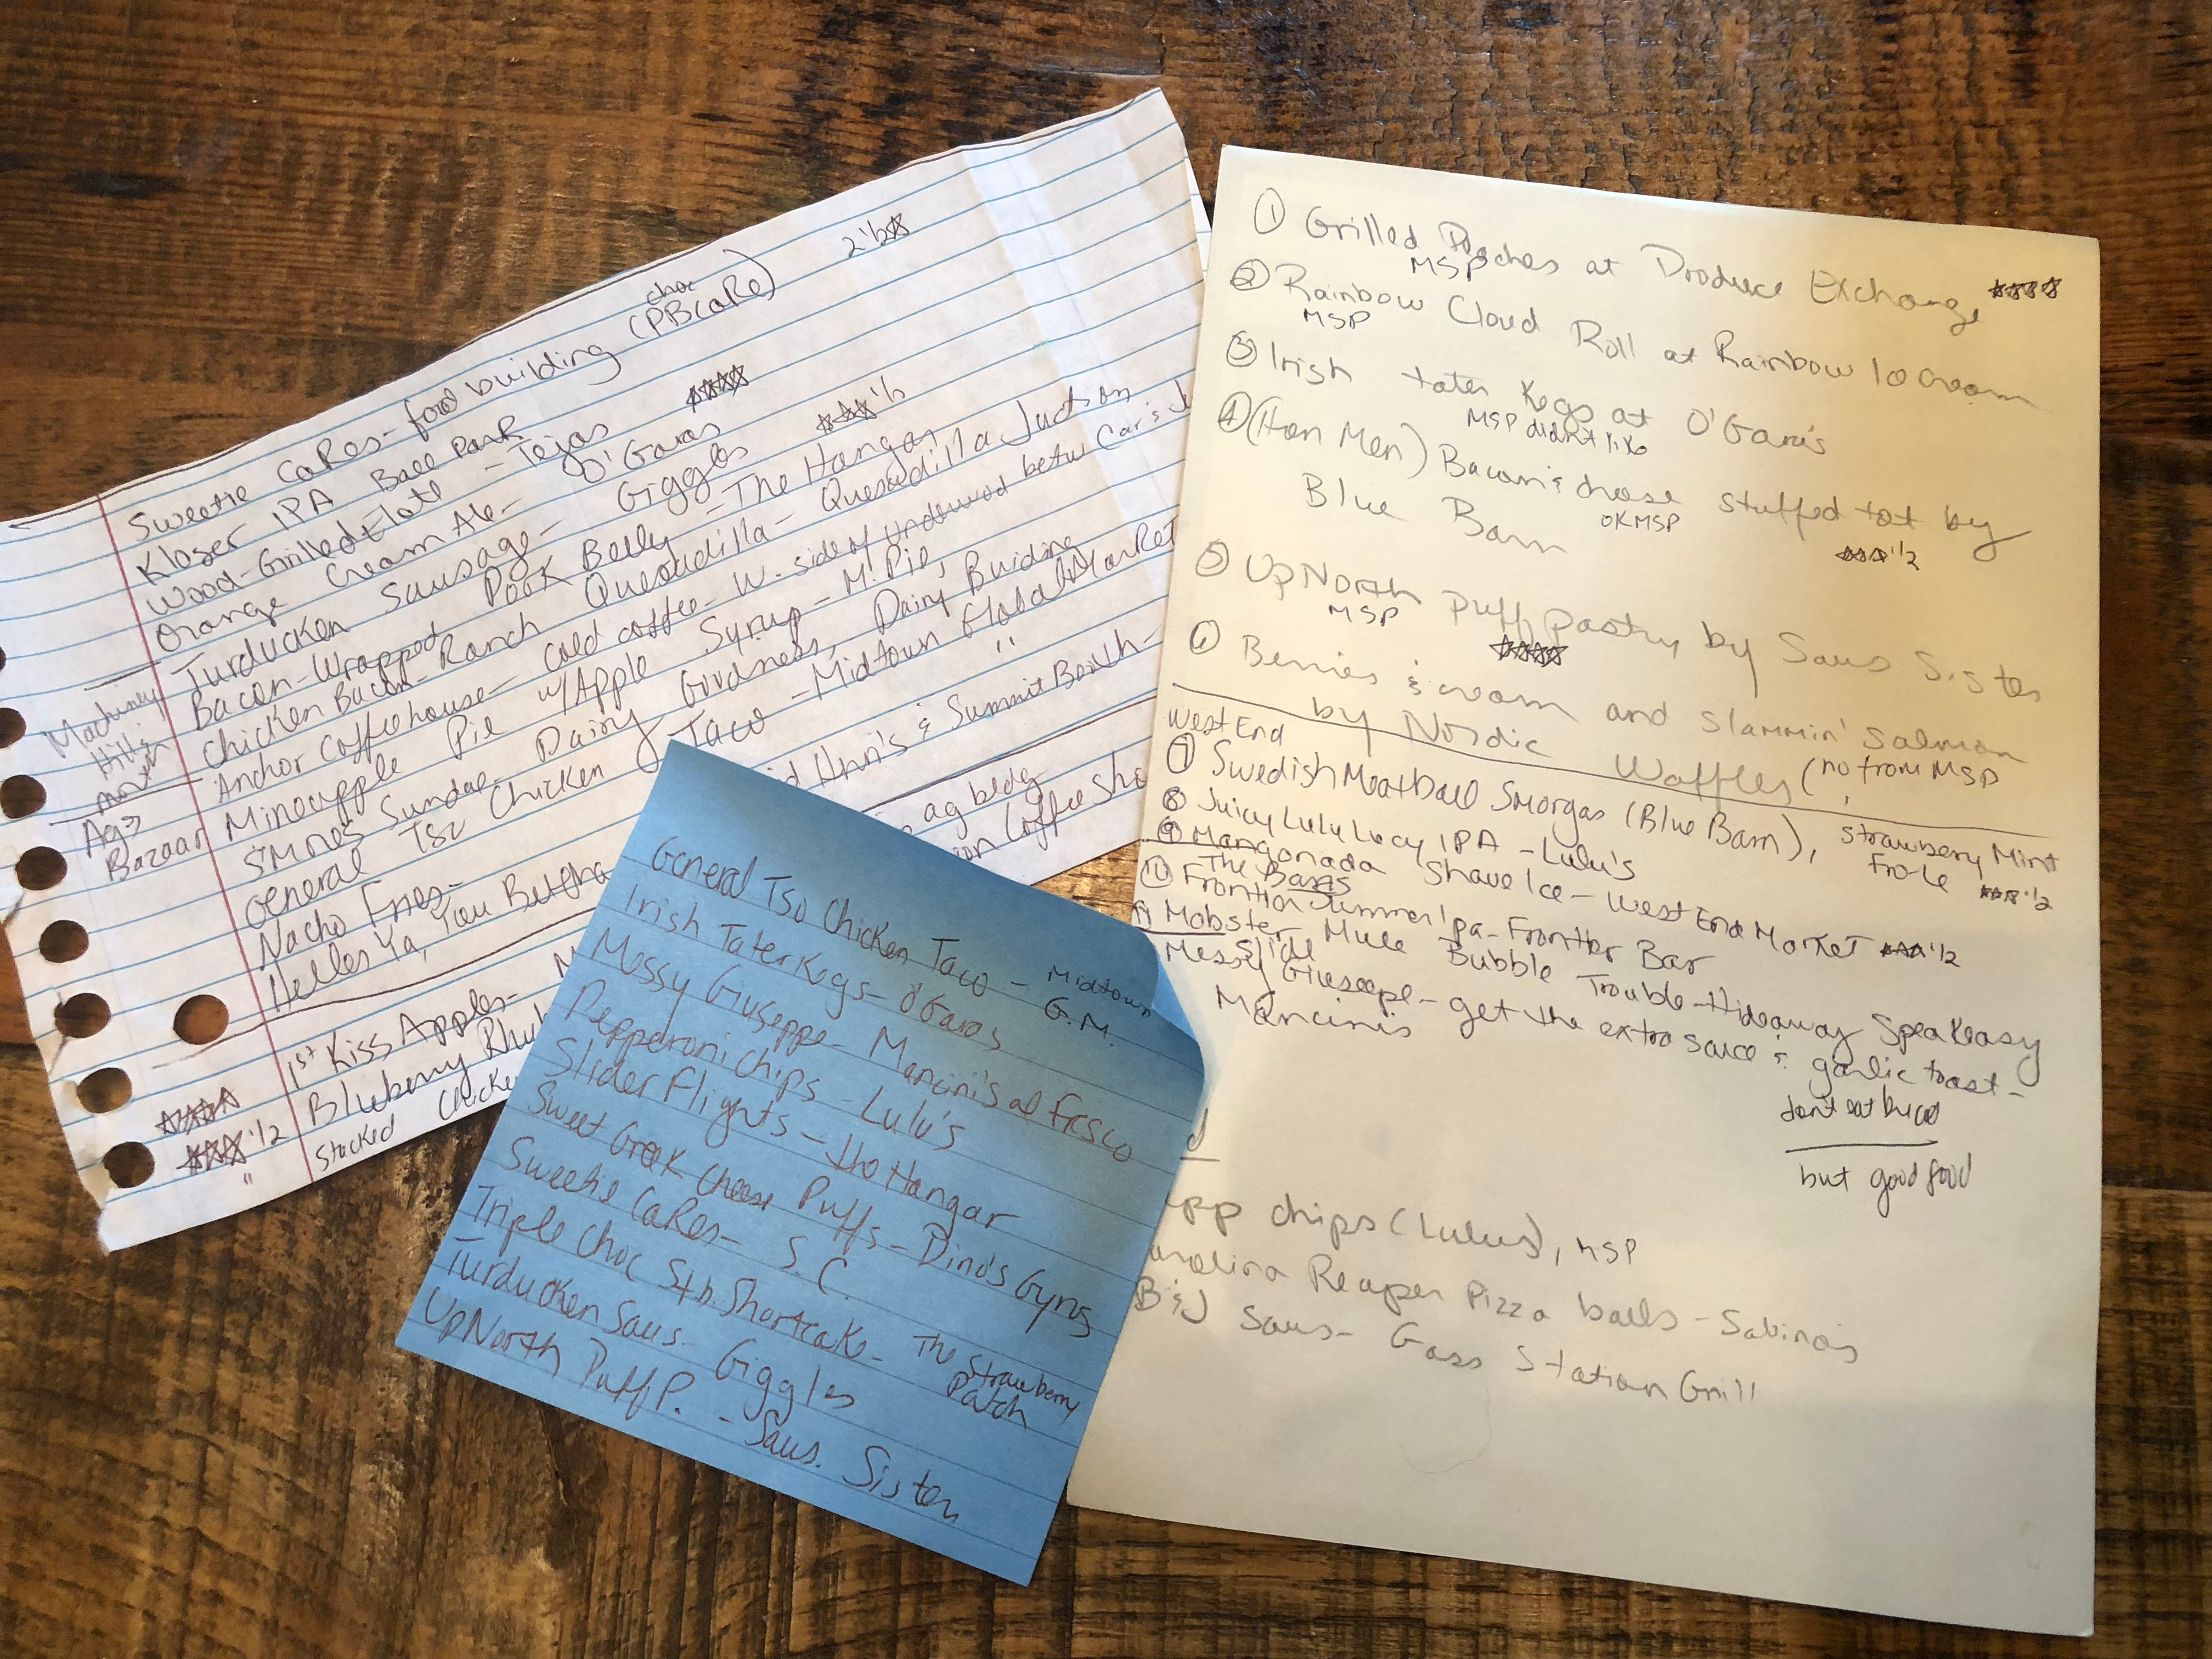 Sweetie Cakes - food building (PB cake) 2 1/2☆
choc
Kloser IPA Ball Park
Wood-Grilled Elote - Tejas ☆☆☆☆
Orange Cream Ale - O'Garas
Turducken Sausage - Giggles ☆☆☆ 1/2
Bacon-Wrapped Pork Belly - The Hangar
Chicken Bacon-Ranch Quesadilla - Quesadilla Juction
Anchor Coffeehouse - cold coffee - W. side of Underwood betw Car &
Mineapple Pie w/Apple Syrup - M. Pie,
S'Mores Sundae Dairy Goodness, Dairy Building
General Tso Chicken Taco - Midtown Global Market
Nacho Fries - "
Helles Ya, You Betcha & Summit Booth -
Machinery
Hill &
north
Ag >
Bazaar
ag bldg
Coffee Sho
☆☆☆☆ 1st Kiss Apples -
☆☆☆ 1/2 Bluberry
" Stacked Chicke
General Tso Chicken Taco - Midtown
G.M.
Irish Tater Kegs - O'Garas
Messy Giuseppe - Mancini's al Fresco
Pepperoni chips - Lulu's
Slider Flights - the Hangar
Sweet Greek Cheese Puffs - Dino's Gyros
Sweetie Cakes - S.C.
Triple Choc Stb. Shortcake - The Strawberry
Patch
Turducken Saus - Giggles
UpNorth Puff P. - Saus. Sister
① Grilled Peaches at Produce Exchange ☆☆☆☆
MSP
② Rainbow Cloud Roll at Rainbow Ice Cream
MSP
③ Irish tater Kegs at O'Gara's
MSP didn't like
④ (Hen Men) Bacon & cheese stuffed tot by
Blue Barn OK MSP ☆☆☆ 1/2
⑤ UpNorth puff pastry by Saus Sister
MSP ☆☆☆☆
⑥ Berries & cream and slammin' salmon
by Nordic Waffles (no from MSP
West End
⑦ Swedish Meatball Smorgas (Blue Barn), Strawberry Mint
Fro-Le ☆☆☆ 1/2
⑧ Juicy LuLu Lucy IPA - Lulu's
⑨ Mangonada Shave Ice - West End Market ☆☆☆ 1/2
The Bars
⑩ Frontier Summer Ipa - Frontier Bar
⑪ Mobster Mule Bubble Trouble - Hideaway Speakeasy
Slide
Messy Giuseepe - get the extra sauce & garlic toast -
Mancinis don't eat bread
but good food
pp chips (Lulus), MSP
arolina Reaper Pizza balls - Sabino's
B&J Saus - Gass Station Grill